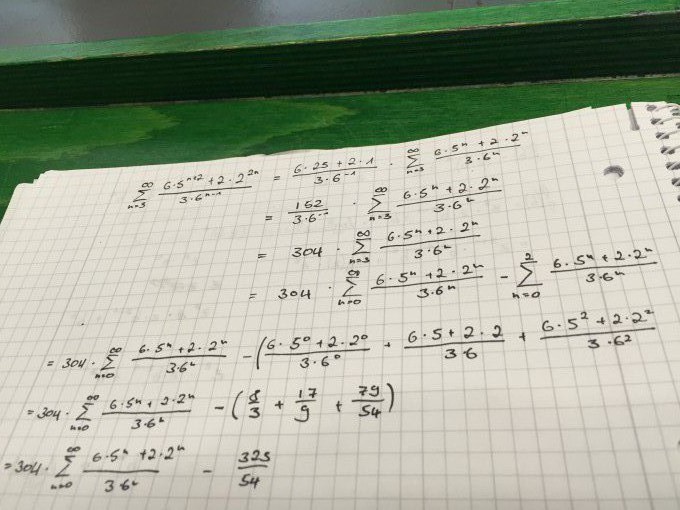 ∑_{n=3}^{∞} (6·5^{n+2} + 2·2^{2n})/(3·6^{n-1}) = (6·25 + 2·1)/(3·6^{-1}) · ∑_{n=3}^{∞} (6·5^n + 2·2^n)/(3·6^n)
= 152/(3·6^{-1}) · ∑_{n=3}^{∞} (6·5^n + 2·2^n)/(3·6^n)
= 304 · ∑_{n=3}^{∞} (6·5^n + 2·2^n)/(3·6^n)
= 304 · ∑_{n=0}^{∞} (6·5^n + 2·2^n)/(3·6^n) - ∑_{n=0}^{2} (6·5^n + 2·2^n)/(3·6^n)
= 304 · ∑_{n=0}^{∞} (6·5^n + 2·2^n)/(3·6^n) - ((6·5^0 + 2·2^0)/(3·6^0) + (6·5 + 2·2)/(3·6) + (6·5^2 + 2·2^2)/(3·6^2)
= 304 · ∑_{n=0}^{∞} (6·5^n + 2·2^n)/(3·6^n) - (8/3 + 17/9 + 79/54)
= 304 · ∑_{n=0}^{∞} (6·5^n + 2·2^n)/(3·6^n) - 325/54